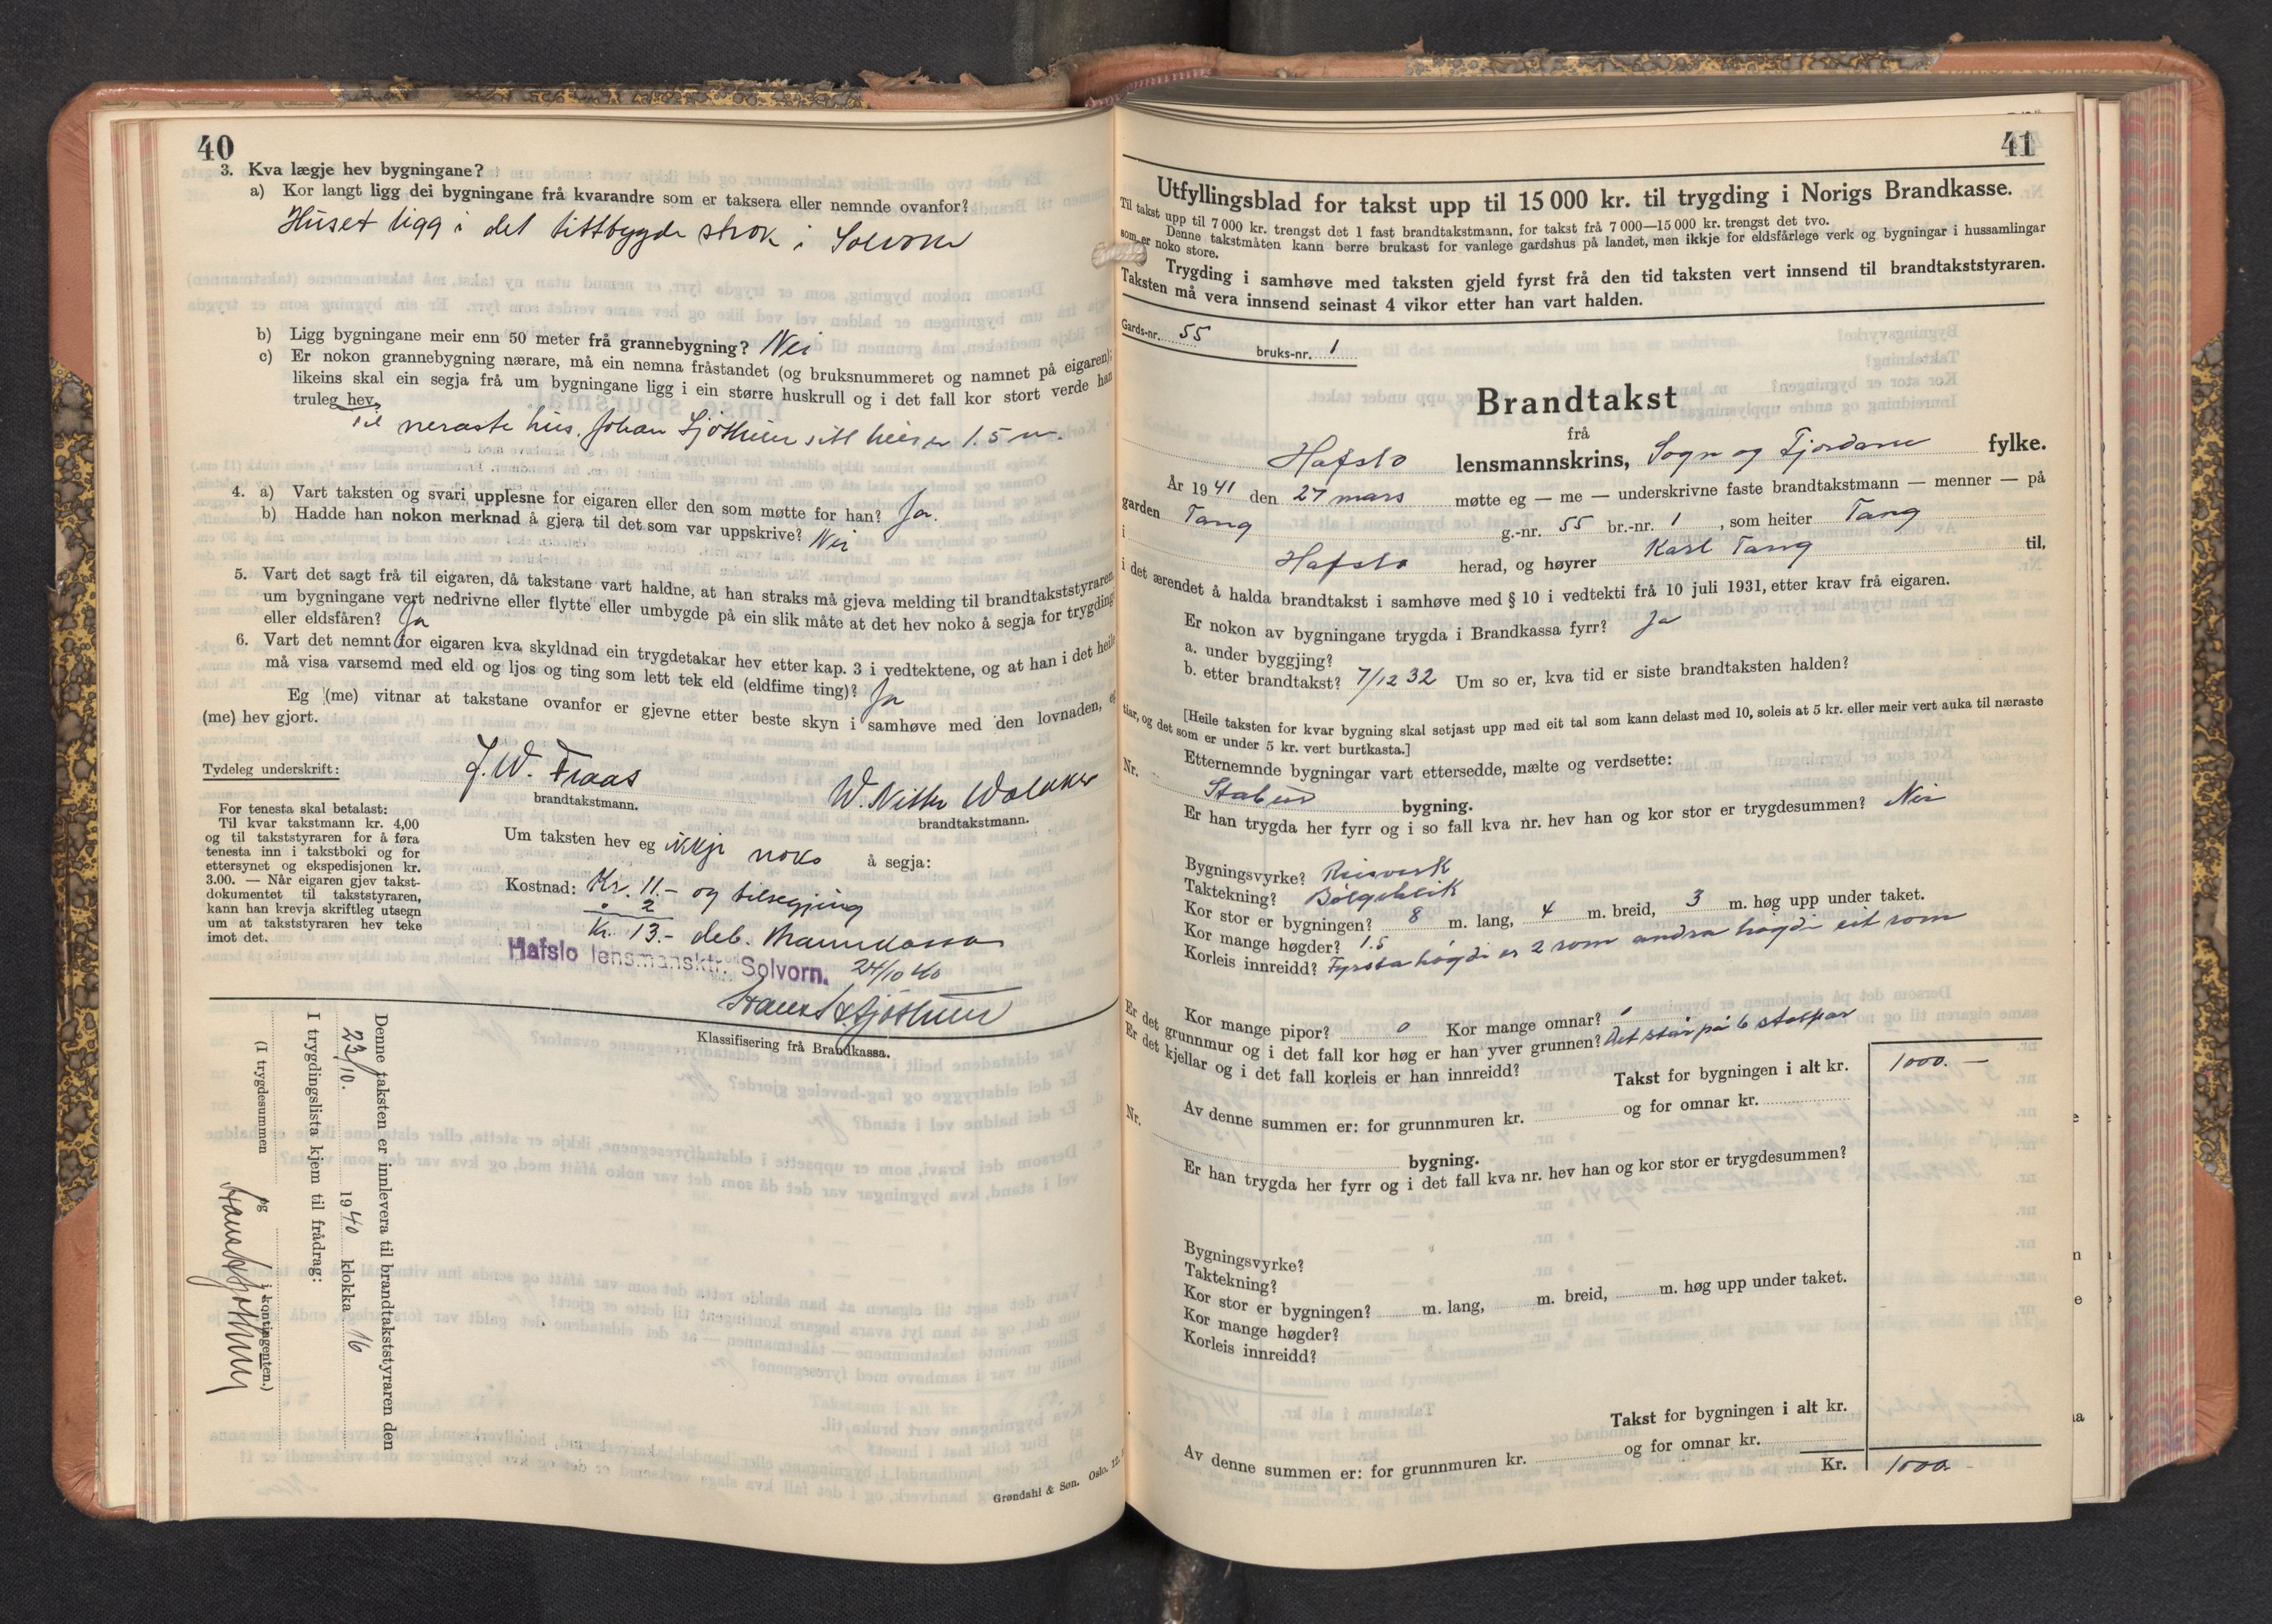 40
3. Kva lægje hev bygningane?
a) Kor langt ligg dei bygningane frå kvarandre som er taksera eller nemnde ovanfor?
Huset ligg i det tittbygde strok i Solvorn
b) Ligg bygningane meir enn 50 meter frå grannebygning? Nei
c) Er nokon grannebygning nærare, må ein nemna fråstandet (og bruksnummeret og namnet på eigaren);
likeins skal ein segja frå um bygningane ligg i ein større huskrull og i det fall kor stort verde han
truleg hev.
Til neraste hus, Johan Sjøthun sitt hus er 1.5 m.
4. a) Vart taksten og svari upplesne for eigaren eller den som møtte for han? Ja.
b) Hadde han nokon merknad å gjera til det som var uppskrive? Nei
5. Vart det sagt frå til eigaren, då takstane vart haldne, at han straks må gjeva melding til brandtakststyraren
um bygningane vert nedrivne eller flytte eller umbygde på ein slik måte at det hev noko å segja for trygding
eller eldsfåren? Ja
6. Vart det nemnt for eigaren kva skyldnad ein trygdetakar hev etter kap. 3 i vedtektene, og at han i det heile
må visa varsemd med eld og ljos og ting som lett tek eld (eldfime ting)? Ja
Eg (me) vitnar at takstane ovanfor er gjevne etter beste skyn i samhøve med den lovnaden, eg
(me) hev gjort.
Tydeleg underskrift: J. W. Fraas
brandtakstmann.
W. Nitter Walaker
brandtakstmann.
For tenesta skal betalast:
Til kvar takstmann kr. 4,00
og til takststyraren for å føra
tenesta inn i takstboki og for
ettersynet og ekspedisjonen kr.
3.00. — Når eigaren gjev takst-
dokumentet til takststyraren,
kann han krevja skriftleg utsegn
um at takststyraren hev teke
imot det.
Um taksten hev eg ikkje noko å segja:
Kostnad: Kr. 11.- og tilsegjing
" 2
Kr. 13.- deb. Brannkassa
Hafslo lensmansktr. Solvorn. 24/10 40
Hans S. Sjøthun
Klassifisering frå Brandkassa.
Denne taksten er innlevera til brandtakststyraren den
23/10. 1940 klokka 16
I trygdingslista kjem til frådrag:
(I trygdesummen og i kontingenten.)
Hans S. Sjøthun
Grøndahl & Søn. Oslo. 12.
41
Utfyllingsblad for takst upp til 15 000 kr. til trygding i Norigs Brandkasse.
Til takst upp til 7 000 kr. trengst det 1 fast brandtakstmann, for takst frå 7 000—15 000 kr. trengst det tvo.
Denne takstmåten kann berre brukast for vanlege gardshus på landet, men ikkje for eldsfårlege verk og bygningar i hussamlingar
som er noko store.
Trygding i samhøve med taksten gjeld fyrst frå den tid taksten vert innsend til brandtakststyraren.
Taksten må vera innsend seinast 4 vikor etter han vart halden.
Gards-nr. 55 bruks-nr. 1
Brandtakst
frå
Hafslo lensmannskrins, Sogn og Fjordane fylke.
År 1941 den 27 mars møtte eg — me — underskrivne faste brandtakstmann — menner — på
garden Tang g.-nr. 55 br.-nr. 1, som heiter Tang
i Hafslo herad, og høyrer Karl Tang til,
i det ærendet å halda brandtakst i samhøve med § 10 i vedtekti frå 10 juli 1931, etter krav frå eigaren.
Er nokon av bygningane trygda i Brandkassa fyrr? Ja
a. under byggjing?
b. etter brandtakst? 7/12 32 Um so er, kva tid er siste brandtaksten halden?
[Heile taksten for kvar bygning skal setjast upp med eit tal som kann delast med 10, soleis at 5 kr. eller meir vert auka til næraste
tiar, og det som er under 5 kr. vert burtkasta.]
Etternemnde bygningar vart ettersedde, mælte og verdsette:
Nr. Stabur bygning.
Er han trygda her fyrr og i so fall kva nr. hev han og kor stor er trygdesummen? Nei
Bygningsvyrke? Reisverk
Taktekning? Bølgeblik
Kor stor er bygningen? 8 m. lang, 4 m. breid, 3 m. høg upp under taket.
Kor mange høgder? 1.5
Korleis innreidd? Fyrsta høgdi er 2 rom andra høgdi eit rom
Kor mange pipor? 0 Kor mange omnar?
Er det grunnmur og i det fall kor høg er han yver grunnen? Det står på 6 stolpar
Er det kjellar og i det fall korleis er han innreidd?
Takst for bygningen i alt kr. 1000.—
Av denne summen er: for grunnmuren kr. og for omnar kr.
Nr. bygning.
Er han trygda her fyrr og i det fall kva nr. hev han og kor stor er trygdesummen?
Bygningsvyrke?
Taktekning?
Kor stor er bygningen? m. lang, m. breid, m. høg upp under taket.
Kor mange høgder?
Korleis innreidd?
Takst for bygningen i alt kr.
Av denne summen er: for grunnmuren kr. og for omnar kr.
Kr. 1000.-